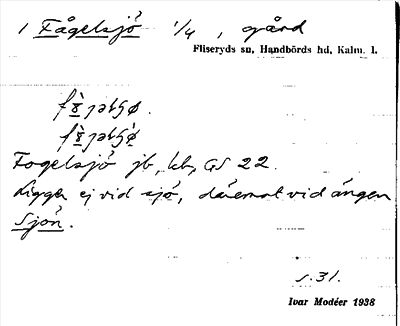 1 Fågelsjö 1/4, gård
Fliseryds sn, Handbörds hd, Kalm. l.
Fogelsjö jb, kb, GS 22.
Ligger ej vid sjö, däremot vid ängen
Sjön.
s. 31.
Ivar Modéer 1938